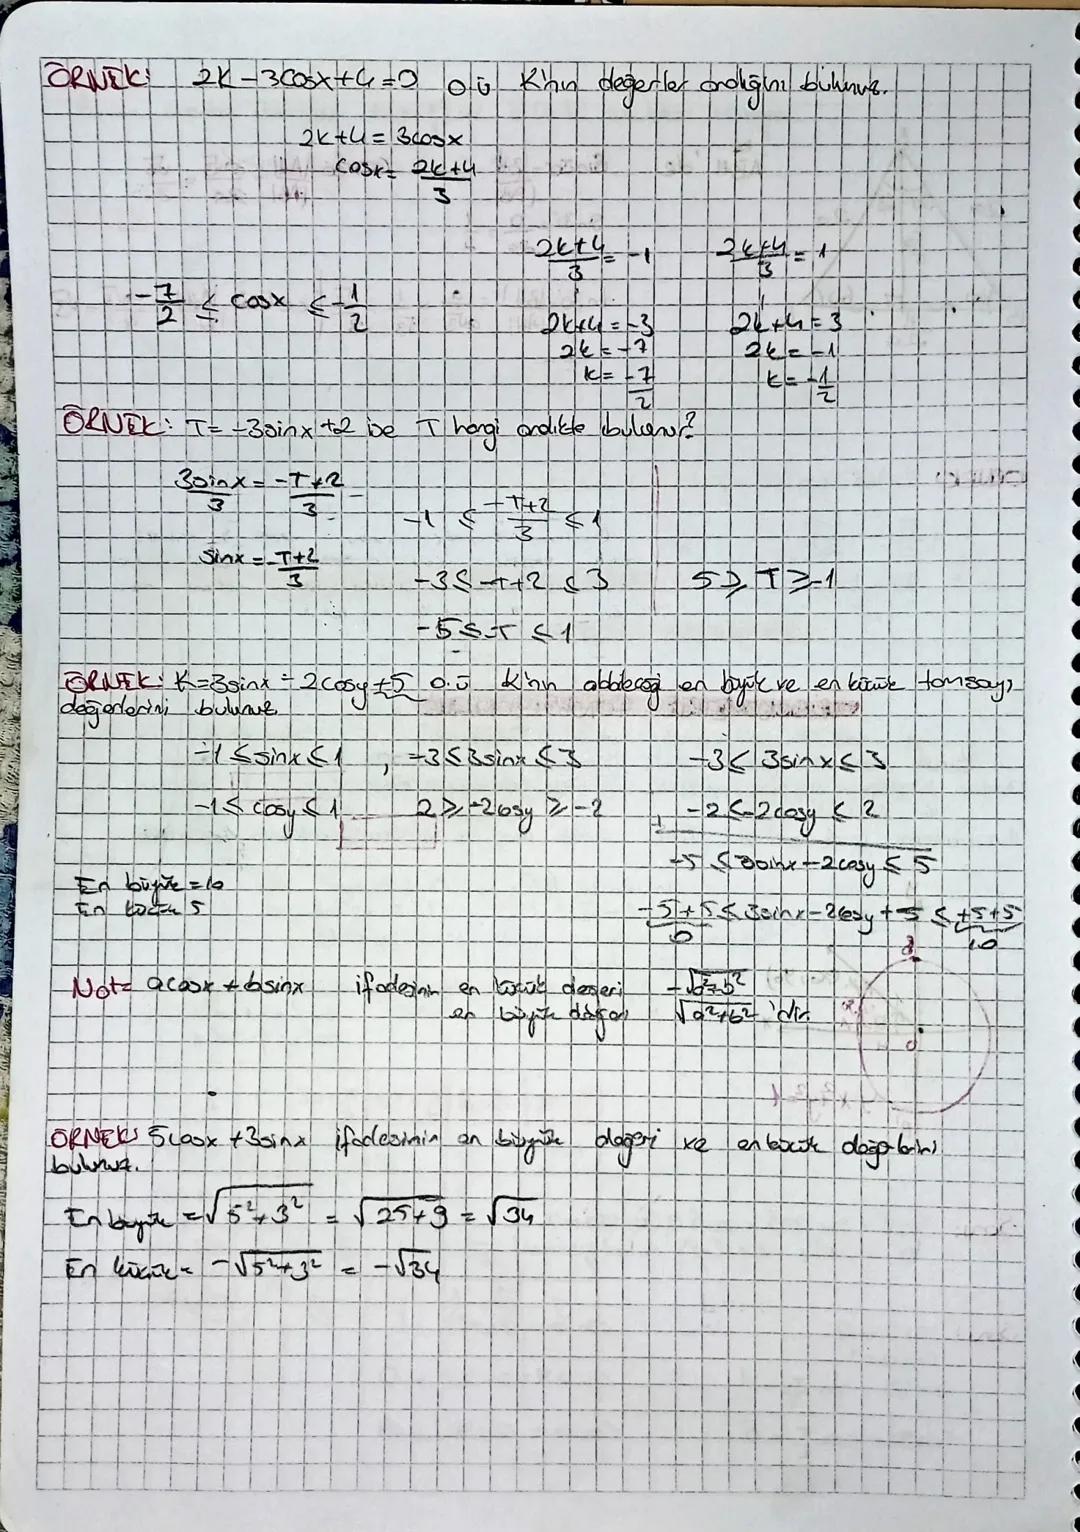 ÖRNEK: 2K-3cosx+4=0 o.ü K'nın değerler aralığını bulunuz.
2k+4=3cosx
cosx= 2k+4/3
2k+4/3=-1 2k+4/3=1
-7/2 ≤ cosx ≤ -1/2
2k+4=-3 2k+4=3
2k=-7 2k=-1
k=-7/2 k=-1/2
ÖRNEK: T=-3sinx+2 ise T hangi aralıkta bulunur?
3sinx/3=-T+2/3
-1 ≤ -T+2/3 ≤ 1
sinx=-T+2/3
-3≤-T+2≤3 5≥T≥-1
-5≤-T≤1
ÖRNEK: K=3sinx-2cosy+5 o.ü K'nın alabileceği en büyük ve en küçük tamsayı
değerlerini bulunuz
-1≤sinx≤1, -3≤3sinx≤3 -3≤3sinx≤3
-1≤cosy≤1 2≥-2cosy≥-2 + -2≤-2cosy≤2
-5≤3sinx-2cosy≤5
En büyük=10
En küçük 5
-5+5≤3sinx-2cosy+5≤+5+5
0 10
Not= acosx+bsinx ifadesinin en küçük değeri -√a²+b²
en büyük değeri √a²+b² 'dir
ÖRNEK: 5cosx+3sinx ifadesinin en büyük değeri ve en küçük değerlerini
bulunuz.
En büyük =√5²+3² = √25+9 = √34
En küçük= -√5²+3² = -√34